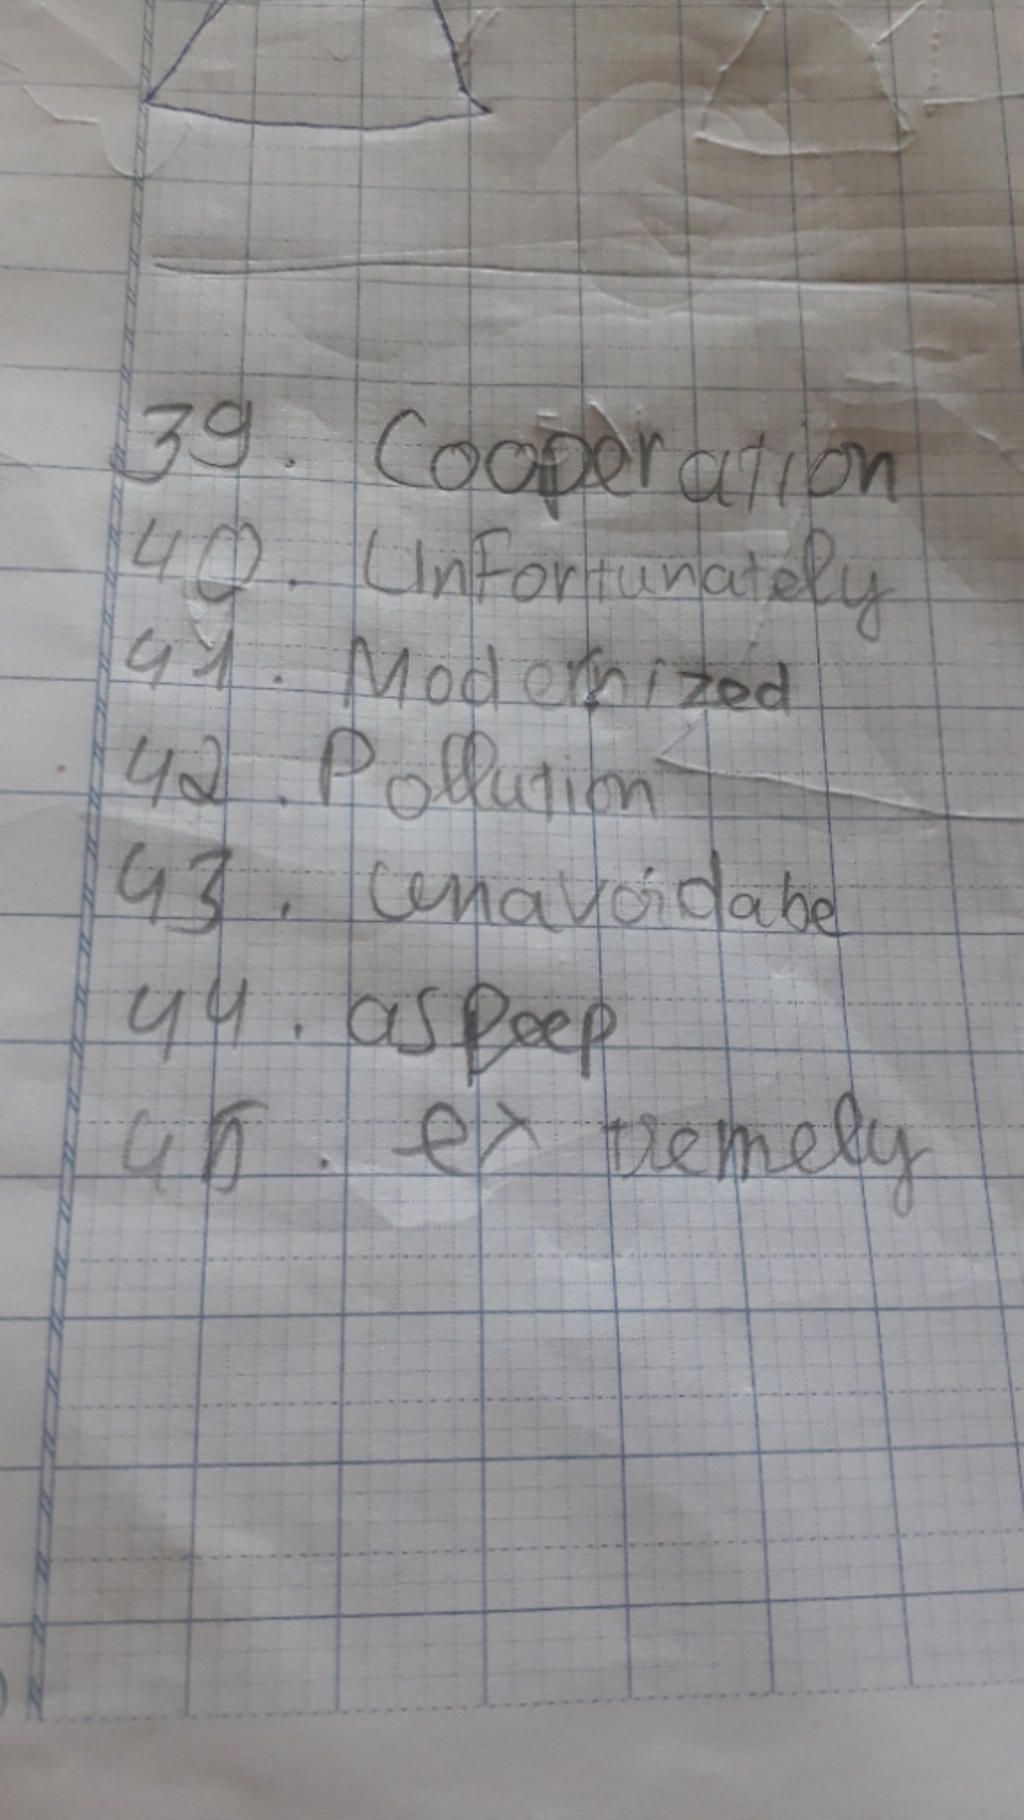 39. Cooperation
40. Unfortunately
41. Modernized
42. Pollution
43. unavoidabe
44. asleep
45. extremely